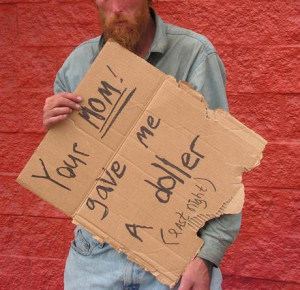 Your MOM!
gave me
A doller
(Last night)